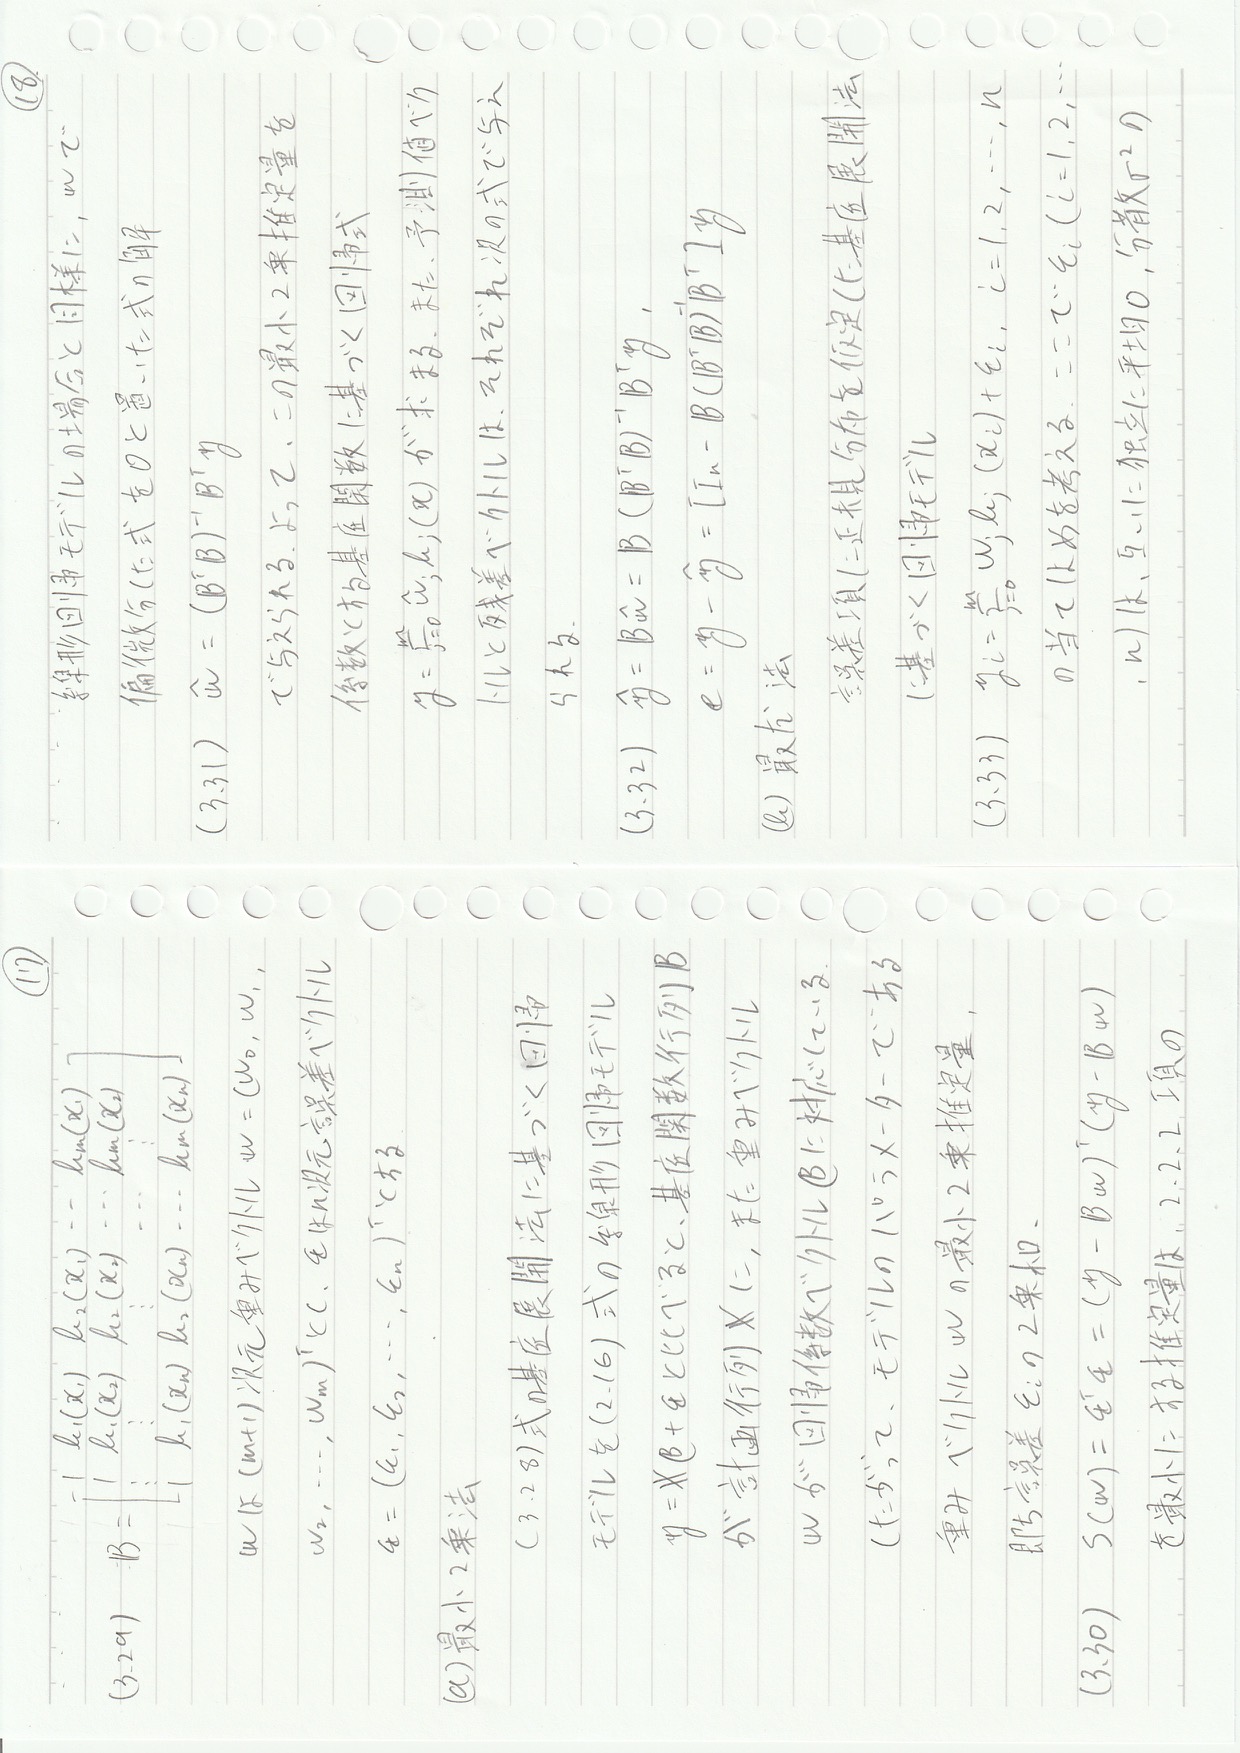 (17)
(3.29) B = [ 1 b₁(x₁) b₂(x₁) ··· bm(x₁)
1 b₁(x₂) b₂(x₂) ··· bm(x₂)
⋮ ⋮ ⋮ ··· ⋮
1 b₁(xn) b₂(xn) ··· bm(xn) ]
wは(m+1)次元重みベクトルw=(w₀, w₁,
w₂, ···, wm)ᵀとし、εはn次元誤差ベクトル
ε = (ε₁, ε₂, ···, εn)ᵀとする
(a) 最小2乗法
(3.28)式の基底展開法に基づく回帰
モデルを(2.16)式の線形回帰モデル
y = Xβ + εとくらべると、基底関数行列B
が計画行列Xに, また重みベクトル
wが回帰係数ベクトルβに対応している.
したがって、モデルのパラメーターである
重みベクトルwの最小2乗推定量,
即ち誤差εiの2乗和.
(3.30) S(w) = εᵀε = (y - Bw)ᵀ(y - Bw)
を最小にする推定量は, 2.2.2項の
(18)
線形回帰モデルの場合と同様に, wで
偏微分した式を0と置いた式の解
(3.31) ŵ = (BᵀB)⁻¹Bᵀy
で与えられる. よって、この最小2乗推定量を
係数とする基底関数に基づく回帰式
y = Σ_{j=0}^{m} ŵj bj(x) が求まる. また、予測値ベク
トルと残差ベクトルは、それぞれ次の式で与え
られる.
(3.32) ŷ = Bŵ = B(BᵀB)⁻¹Bᵀy ,
e = y - ŷ = [In - B(BᵀB)⁻¹Bᵀ]y
(b) 最尤法
誤差項に正規分布を仮定した基底展開法
に基づく回帰モデル
(3.33) yi = Σ_{j=0}^{m} wj bj(xi) + εi, i=1, 2, ···, n
の当てはめを考える. ここでεi (i=1, 2, ···
, n)は、互いに独立に平均0, 分散σ²の